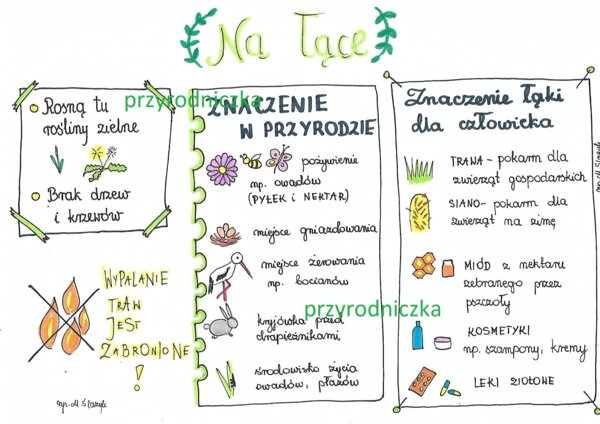 Na łące
Rosną tu
rośliny zielne
Brak drzew
i krzewów
WYPALANIE
TRAW
JEST
ZABRONIONE
!
przyrodniczka
ZNACZENIE
W PRZYRODZIE
pożywienie
np. owadów
(PYŁEK i NEKTAR)
miejsce gniazdowania
miejsce żerowania
np. bocianów
przyrodniczka
kryjówka przed
drapieżnikami
środowisko życia
owadów, płazów
Znaczenie łąki
dla człowieka
TRAWA - pokarm dla
zwierząt gospodarskich
SIANO - pokarm dla
zwierząt na zimę
MIÓD z nektaru
zebranego przez
pszczoły
KOSMETYKI
np. szampony, kremy
LEKI ZIOŁOWE